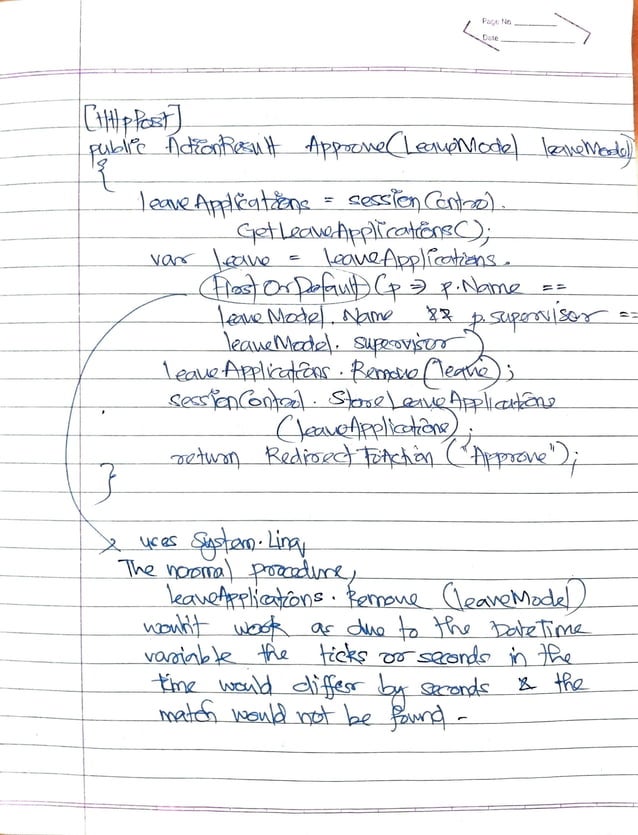 Page No.
Date
[HttpPost]
public ActionResult Approve(LeaveModel leaveModel)
{
leaveApplications = sessionControl.
GetLeaveApplications();
var leave = leaveApplications.
FirstOrDefault(p => p.Name ==
leaveModel.Name && p.supervisor ==
leaveModel.supervisor)
leaveApplications.Remove(leave);
sessionControl.StoreLeaveApplications
(leaveApplications);
return RedirectToAction("Approve");
}
uses System.Linq,
The normal procedure,
leaveApplications.Remove (leaveModel)
wouldn't work as due to the DateTime
variable the ticks or seconds in the
time would differ by seconds & the
match would not be found -